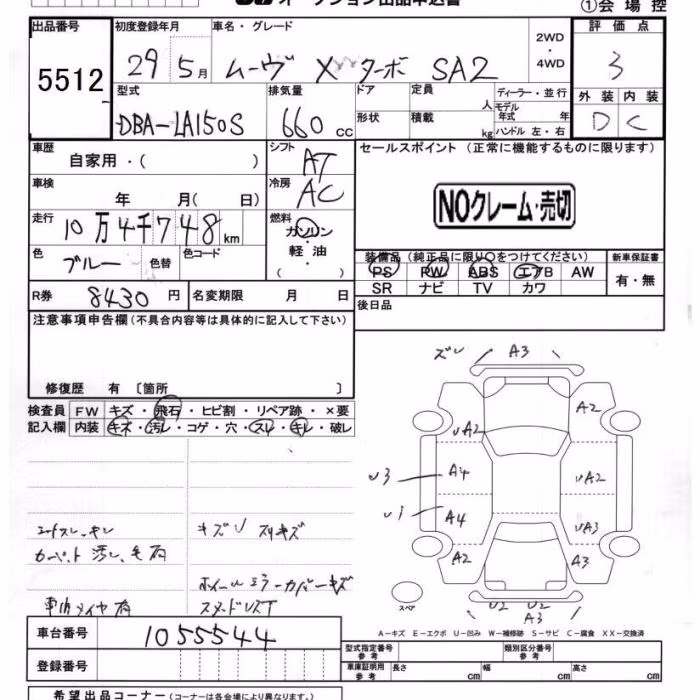 ①会場控
出品番号 初度登録年月 車名・グレード 2WD・4WD 評価点
5512 29年5月 ムーヴ X ターボ SA2 3
型式 排気量 ドア 定員 人 ディーラー・並行 外装 内装
DBA-LA150S 660 CC 形状 積載 kg モデル年式 年 ハンドル 左・右 D C
車歴 自家用・( ) シフト AT セールスポイント (正常に機能するものに限ります)
車検 年 月( 日) 冷房 AC NOクレーム・売切
走行 10万4千748km 燃料 ガソリン
軽・油
( )
色 ブルー 色替 色コード 装備品 (純正品に限り○をつけてください) 新車保証書
PS PW ABS エアB AW 有・無
SR ナビ TV カワ
R券 8430円 名変期限 月 日 後日品
注意事項申告欄(不具合内容等は具体的に記入して下さい)
修復歴 有 〔箇所 〕
検査員 FW キズ・飛石・ヒビ割・リペア跡・×要
記入欄 内装 キズ・汚レ・コゲ・穴・スレ・キレ・破レ
ズレ A3
A2
UA2
U3 A4 UA2
U1 A4 UA3
A2 A3
U2 U2
A3
スペア
カーペット汚レ、毛有
ホイールミラーカバーキズ
車内タイヤ有
A-キズ E-エクボ U-凹み W-補修跡 S-サビ C-腐食 XX-交換済
車台番号 1055544 型式指定番号 参考 類別区分番号 参考
登録番号 車庫証明用 参考 長さ cm 幅 cm 高さ cm
希望出品コーナー(コーナーは各会場により異なります。)